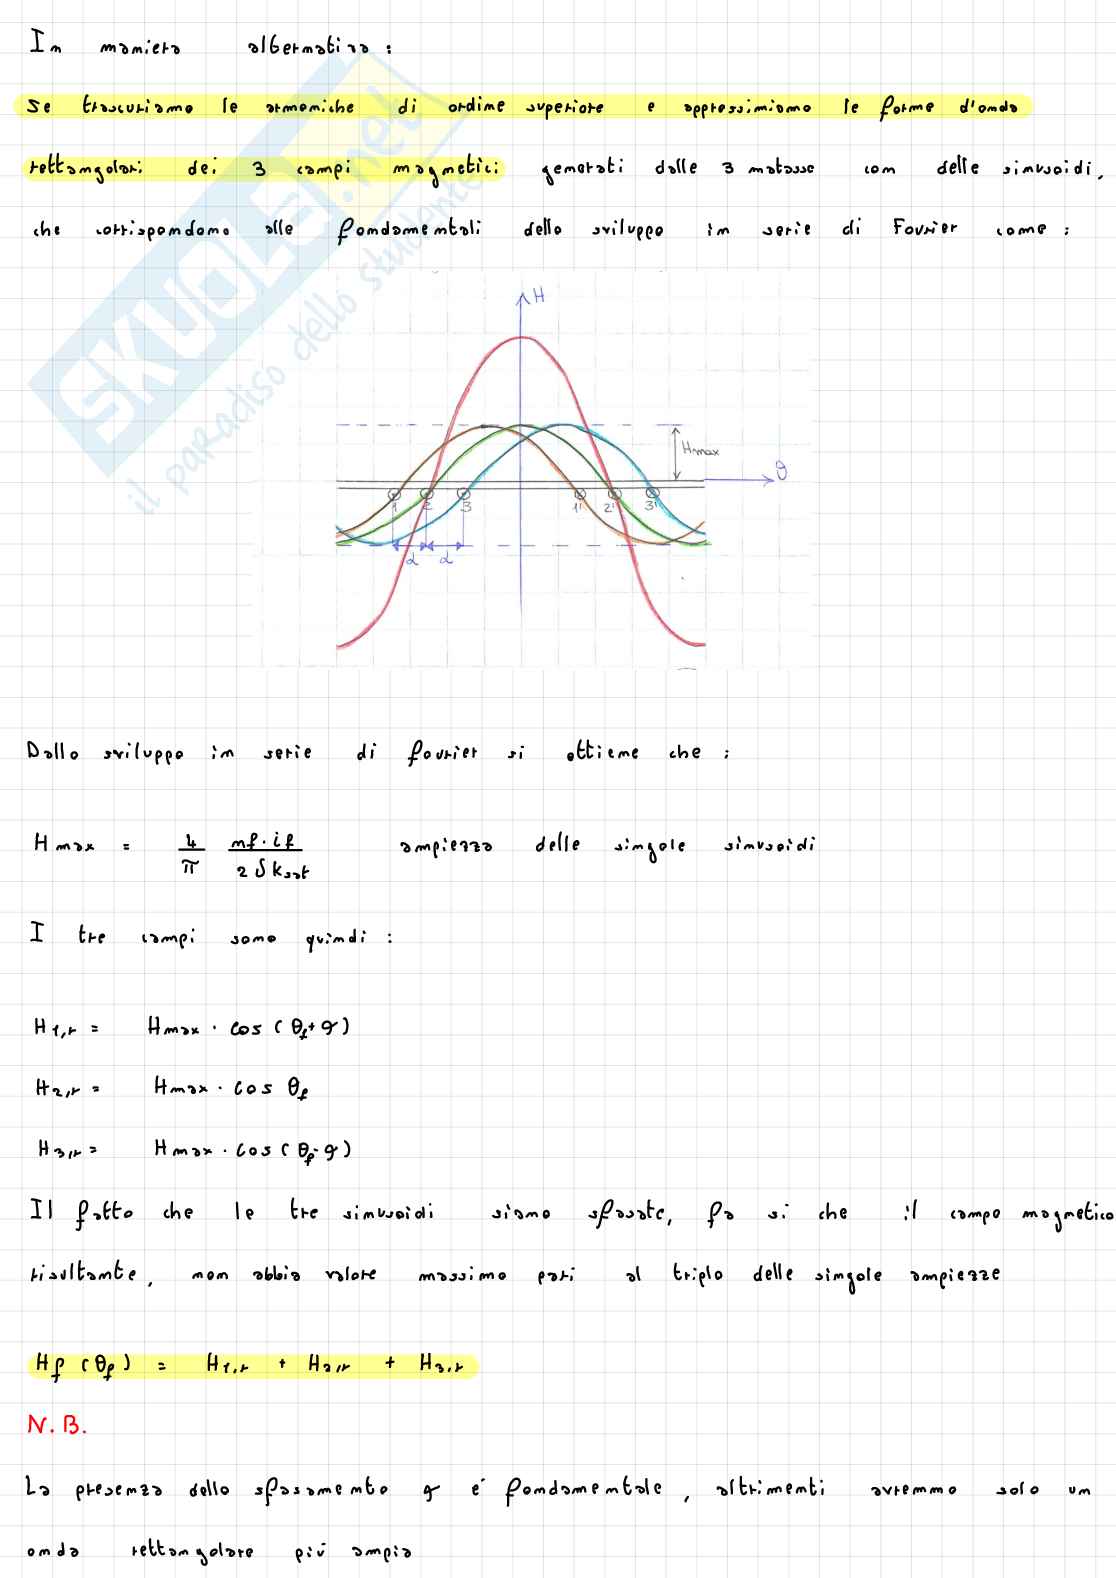 In maniera alternativa :
Se trascuriamo le armoniche di ordine superiore e approssimiamo le forme d'onda
rettangolari dei 3 campi magnetici generati dalle 3 matasse con delle sinusoidi,
che corrispondono alle fondamentali dello sviluppo in serie di Fourier come :
H
Hmax
θ
1 2 3 1' 2' 3'
α α
Dallo sviluppo in serie di fourier si ottiene che :
Hmax = 4/π mf·if / 2δksat ampiezza delle singole sinusoidi
I tre campi sono quindi :
H1,r = Hmax · cos (θf + α)
H2,r = Hmax · cos θf
H3,r = Hmax · cos (θf - α)
Il fatto che le tre sinusoidi siano sfasate, fa si che il campo magnetico
risultante, non abbia valore massimo pari al triplo delle singole ampiezze
Hf (θf) = H1,r + H2,r + H3,r
N.B.
La presenza dello sfasamento α é fondamentale, altrimenti avremmo solo un
onda rettangolare più ampia
SKUOLA.net
il paradiso dello studente